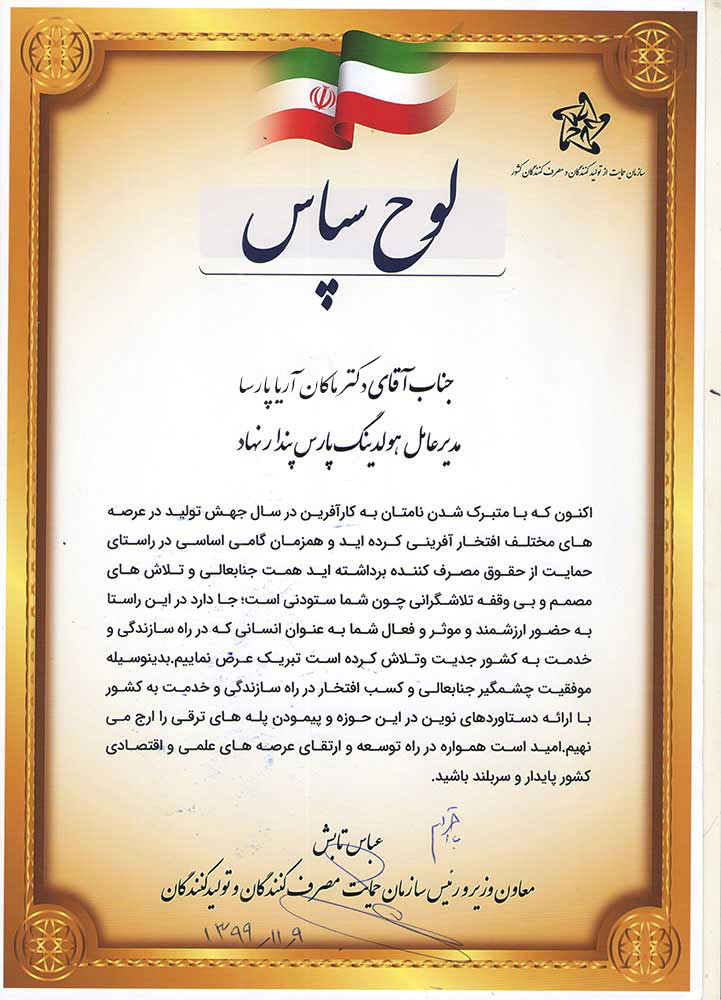 سازمان حمایت از تولید کنندگان و مصرف کنندگان کشور
لوح سپاس
جناب آقای دکتر ماکان آریا پارسا
مدیر عامل هولدینگ پارس پندار نهاد
اکنون که با متبرک شدن نامتان به کارآفرین در سال جهش تولید در عرصه
های مختلف افتخار آفرینی کرده اید و همزمان گامی اساسی در راستای
حمایت از حقوق مصرف کننده برداشته اید همت جنابعالی و تلاش های
مصمم و بی وقفه تلاشگرانی چون شما ستودنی است؛ جا دارد در این راستا
به حضور ارزشمند و موثر و فعال شما به عنوان انسانی که در راه سازندگی و
خدمت به کشور جدیت وتلاش کرده است تبریک عرض نماییم.بدینوسیله
موفقیت چشمگیر جنابعالی و کسب افتخار در راه سازندگی و خدمت به کشور
با ارائه دستاوردهای نوین در این حوزه و پیمودن پله های ترقی را ارج می
نهیم.امید است همواره در راه توسعه و ارتقای عرصه های علمی و اقتصادی
کشور پایدار و سربلند باشید.
با احترام
عباس تابش
معاون وزیر و رئیس سازمان حمایت مصرف کنندگان و تولید کنندگان
۱۳۹۹/۱۱/۹